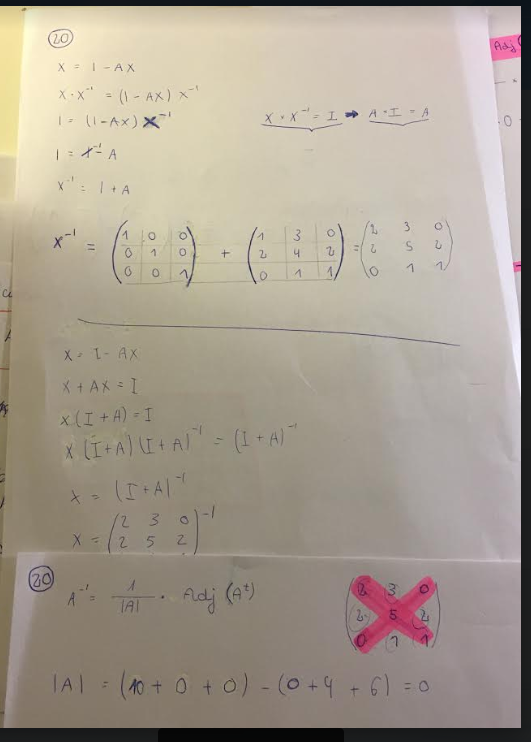 20
x = 1 - Ax
x · x⁻¹ = (1 - Ax) x⁻¹
1 = (1 - Ax) x⁻¹
x · x⁻¹ = I → A · I = A
1 = x⁻¹ - A
x⁻¹ = 1 + A
x⁻¹ = (1 0 0 + (1 3 0 = (2 3 0
0 1 0) 2 4 2) 2 5 2
0 0 1 0 1 1 0 1 1)
x = I - Ax
x + Ax = I
x (I + A) = I
x (I + A) (I + A)⁻¹ = (I + A)⁻¹
x = (I + A)⁻¹
x = (2 3 0)⁻¹
2 5 2
20
A⁻¹ = 1/|A| · Adj (Aᵗ)
2 3 0
2 5 2
0 1 1
|A| = (10 + 0 + 0) - (0 + 4 + 6) = 0
Adj